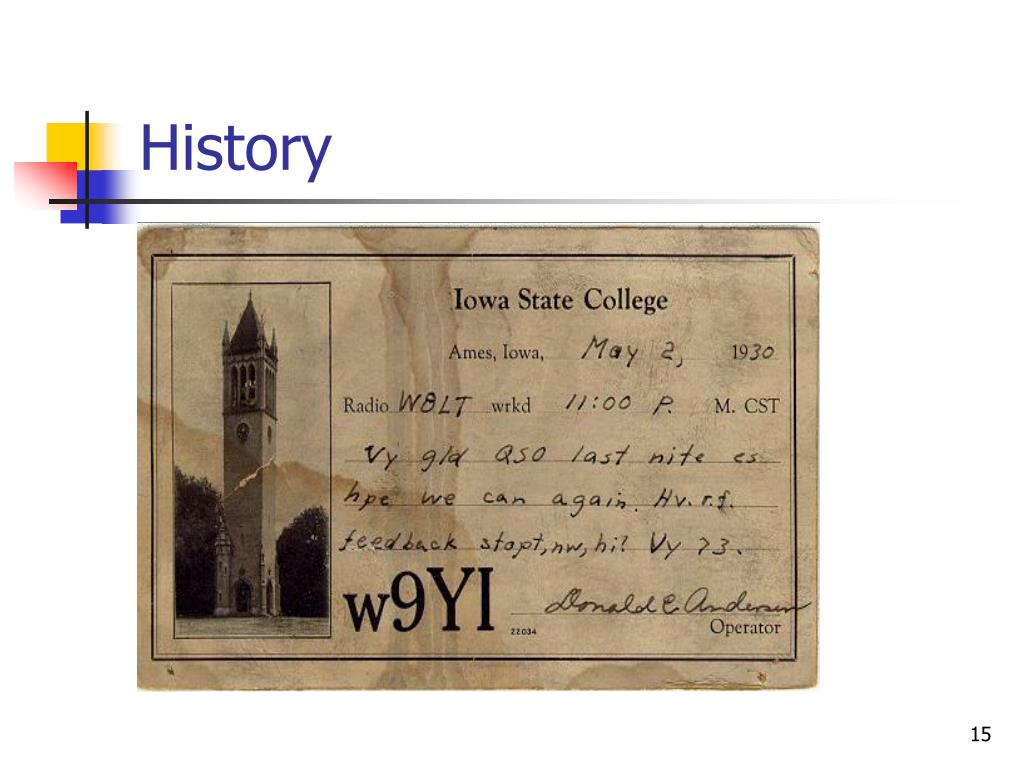 History
Iowa State College
Ames, Iowa, May 2, 1930
Radio W8LT wrkd 11:00 P. M. CST
Vy gld QSO last nite es
hpe we can again. Hv. r.f.
feedback stopt, nw, hi! Vy 73.
w9YI 22034 Donald C. Anderson
Operator
15